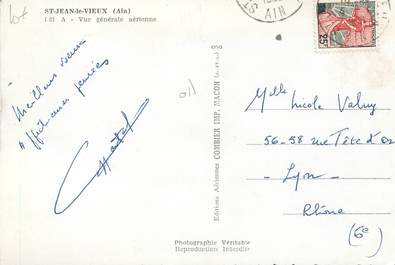 ST-JEAN-le-VIEUX (Ain)
1 21 A - Vue générale aérienne
Meilleurs
Affectueuses pensées
Editions Aériennes COMBIER IMP. MACON
Photographie Véritable
Reproduction Interdite
AIN
25F
Melle Nicole
56-58 rue Tête d'or
Lyon
Rhône
(6e)